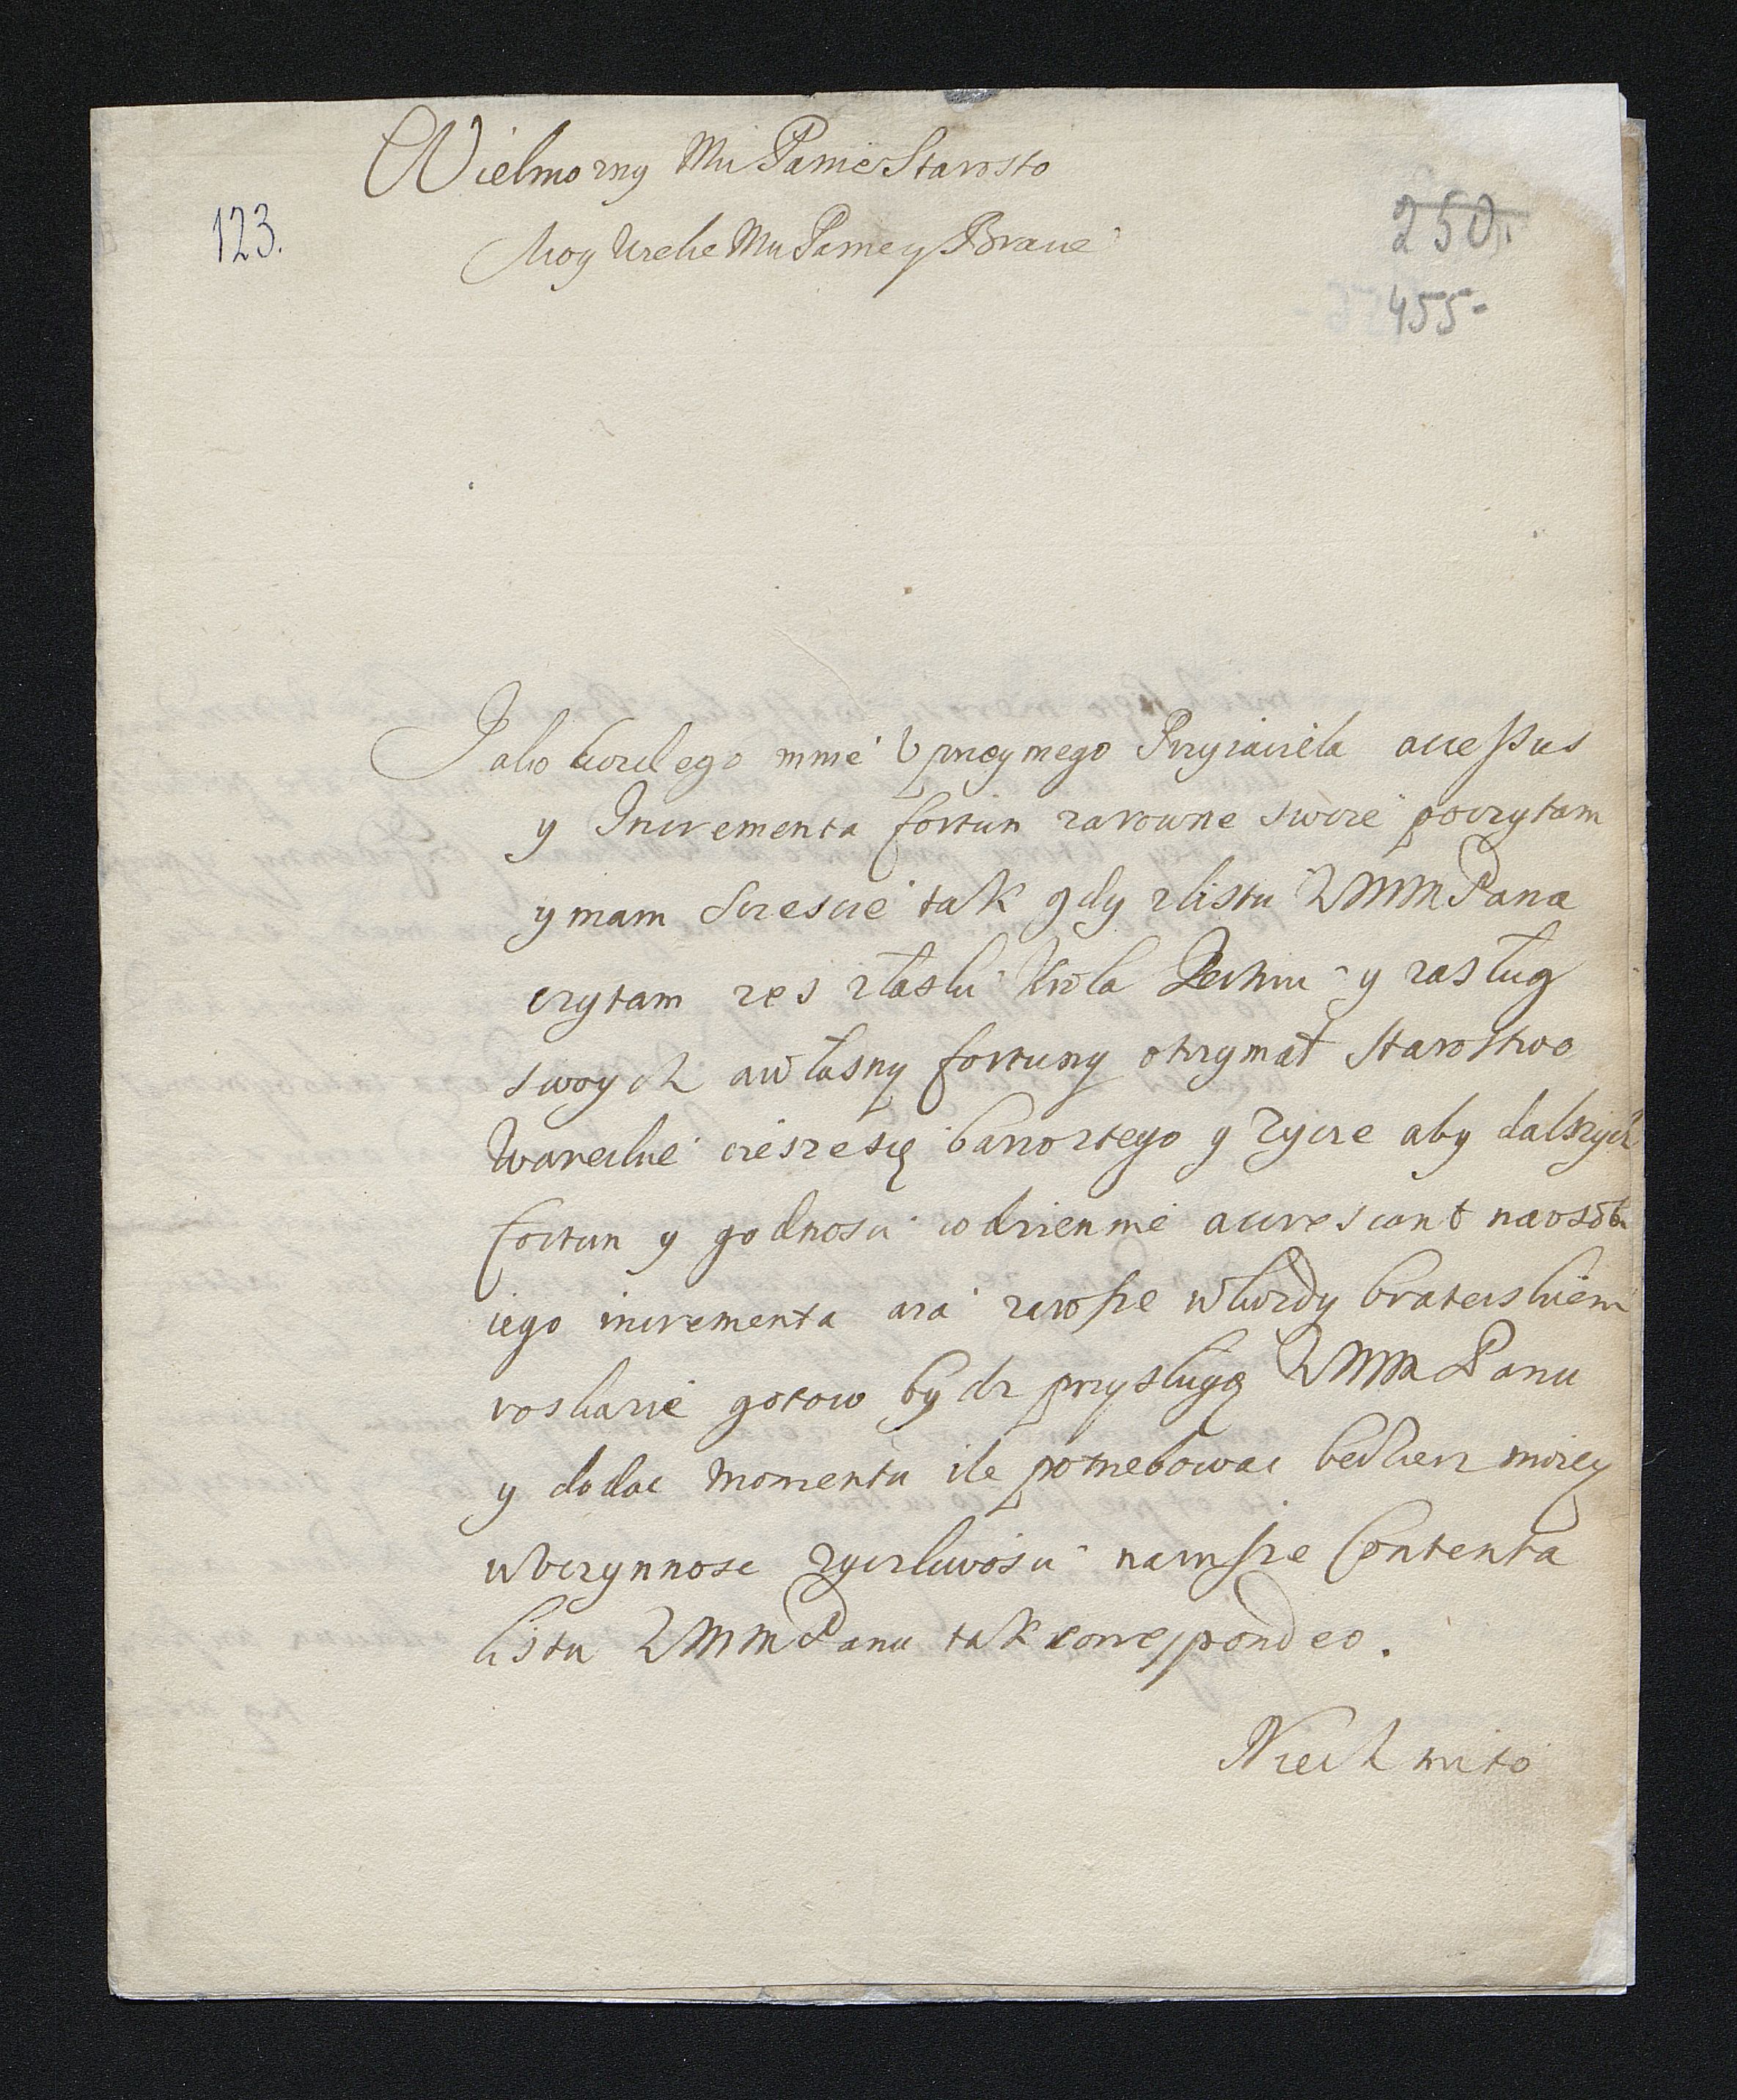 Wielmozny Mci Panie Starosto
123.
Moy Wielce Mci Panie y Bracie
250.
455-
Jako kozdego mnie Uprzeymego Przyiaciela accessus
y Incrementa fortun zarowne swoie poczytam
y mam Sczescie tak gdy z listu WMM Pana
czytam zes z łaski Krola Jeo Mci y zasług
swoych a własny fortuny otrzymał Starostwo
Wareckie ciesze się barzo z tego y zycze aby dalszych
fortun y godnosci codziennie accrescant na osobu
iego incrementa a ia zawsze w kozdy braterskiem
roskazie gotow bydz przysługę WMM Panu
y dodac momentu ile potrzebowac bedziesz moiey
w uczynnosc zyczliwosci na insze Contenta
listu WMM Panu tak correspondeo.
Niech mi to